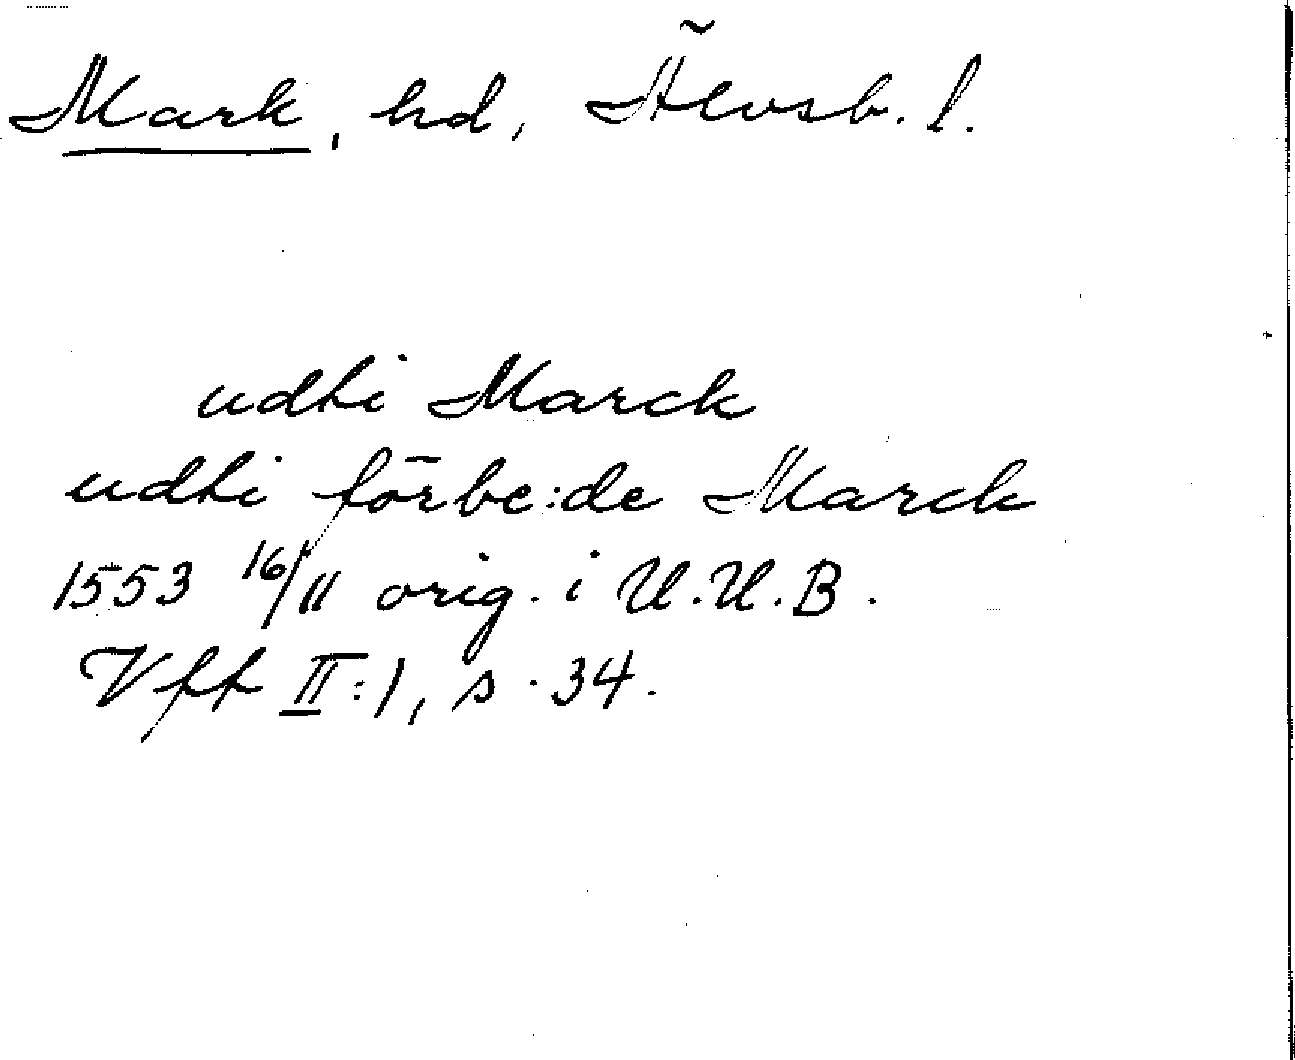 Mark, hd, Älvsb. l.
udhi Marck
udhi förbe:de Marck
1553 16/11 orig. i U.U.B.
Vff II:1, s. 34.